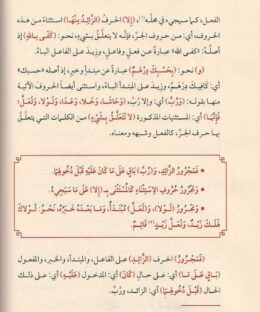 الفعل، كما سيجيء في محلّه(١)، (إلا) الحرفُ (الزَّائِدُ مِنْهَا) استثناءٌ من هذه
الحروف، أي: من حروف الجرِّ، فإنَّه لا يتعلَّق بشيء، نحو: (كَفَى بِاللهِ) إذ
أصلُهُ: «كفى الله» عبارةٌ عن فعلٍ وفاعلٍ، وزيدَ على الفاعل الباءُ.
(و) نحو: (بِحَسْبِكَ دِرْهَمٌ) عبارةٌ عن مبتدأ وخبر، إذ أصله «حسبك»
أي: كافِيكَ درهمٌ، وزيدَ على المبتدأ الباء، واستثنى أيضاً الحروفَ الآتية
منها بقوله: (وَرُبَّ) أي: وإلا رُبَّ، (وَحَاشَا، وَخَلَا، وَعَدَا، وَلَوْلَا، وَلَعَلَّ؛
فَإِنَّهَا) أي: المستثنيات المذكورة (لَا تَتَعَلَّقُ بِشَيْءٍ) من الكلمات التي يتعلَّقُ
بها حرف الجر، كالفعل وشبهه ومعناه.
• فَمَجْرُورُ الزَّائِدِ، وَ(رُبَّ) بَاقٍ عَلَى مَا كَانَ عَلَيْهِ قَبْلَ دُخُولِهِمَا.
• وَمَجْرُورُ حُرُوفِ الِاسْتِثْنَاءِ كَالْمُسْتَثْنَى بِـ (إِلَّا) عَلَى مَا سَيَجِيءُ.
• وَمَجْرُورُ (لَوْلَا)، وَ(لَعَلَّ) مُبْتَدَأٌ، وَمَا بَعْدَهُ خَبَرُهُ، نَحْوُ: لَوْلَاكَ
لَهَلَكَ زَيْدٌ، وَلَعَلَّ زَيْدٍ قَائِمٌ.
(فَمَجْرُورُ) الحرف (الزَّائِدِ) على الفاعل، والمبتدأ، والخبر، والمفعول
(بَاقٍ عَلَى مَا) أي: على حالٍ (كَانَ) أي: المدخول (عَلَيْهِ) أي: على ذلك
الحال (قَبْلَ دُخُولِهِمَا) أي: الزائد، ورُبَّ.